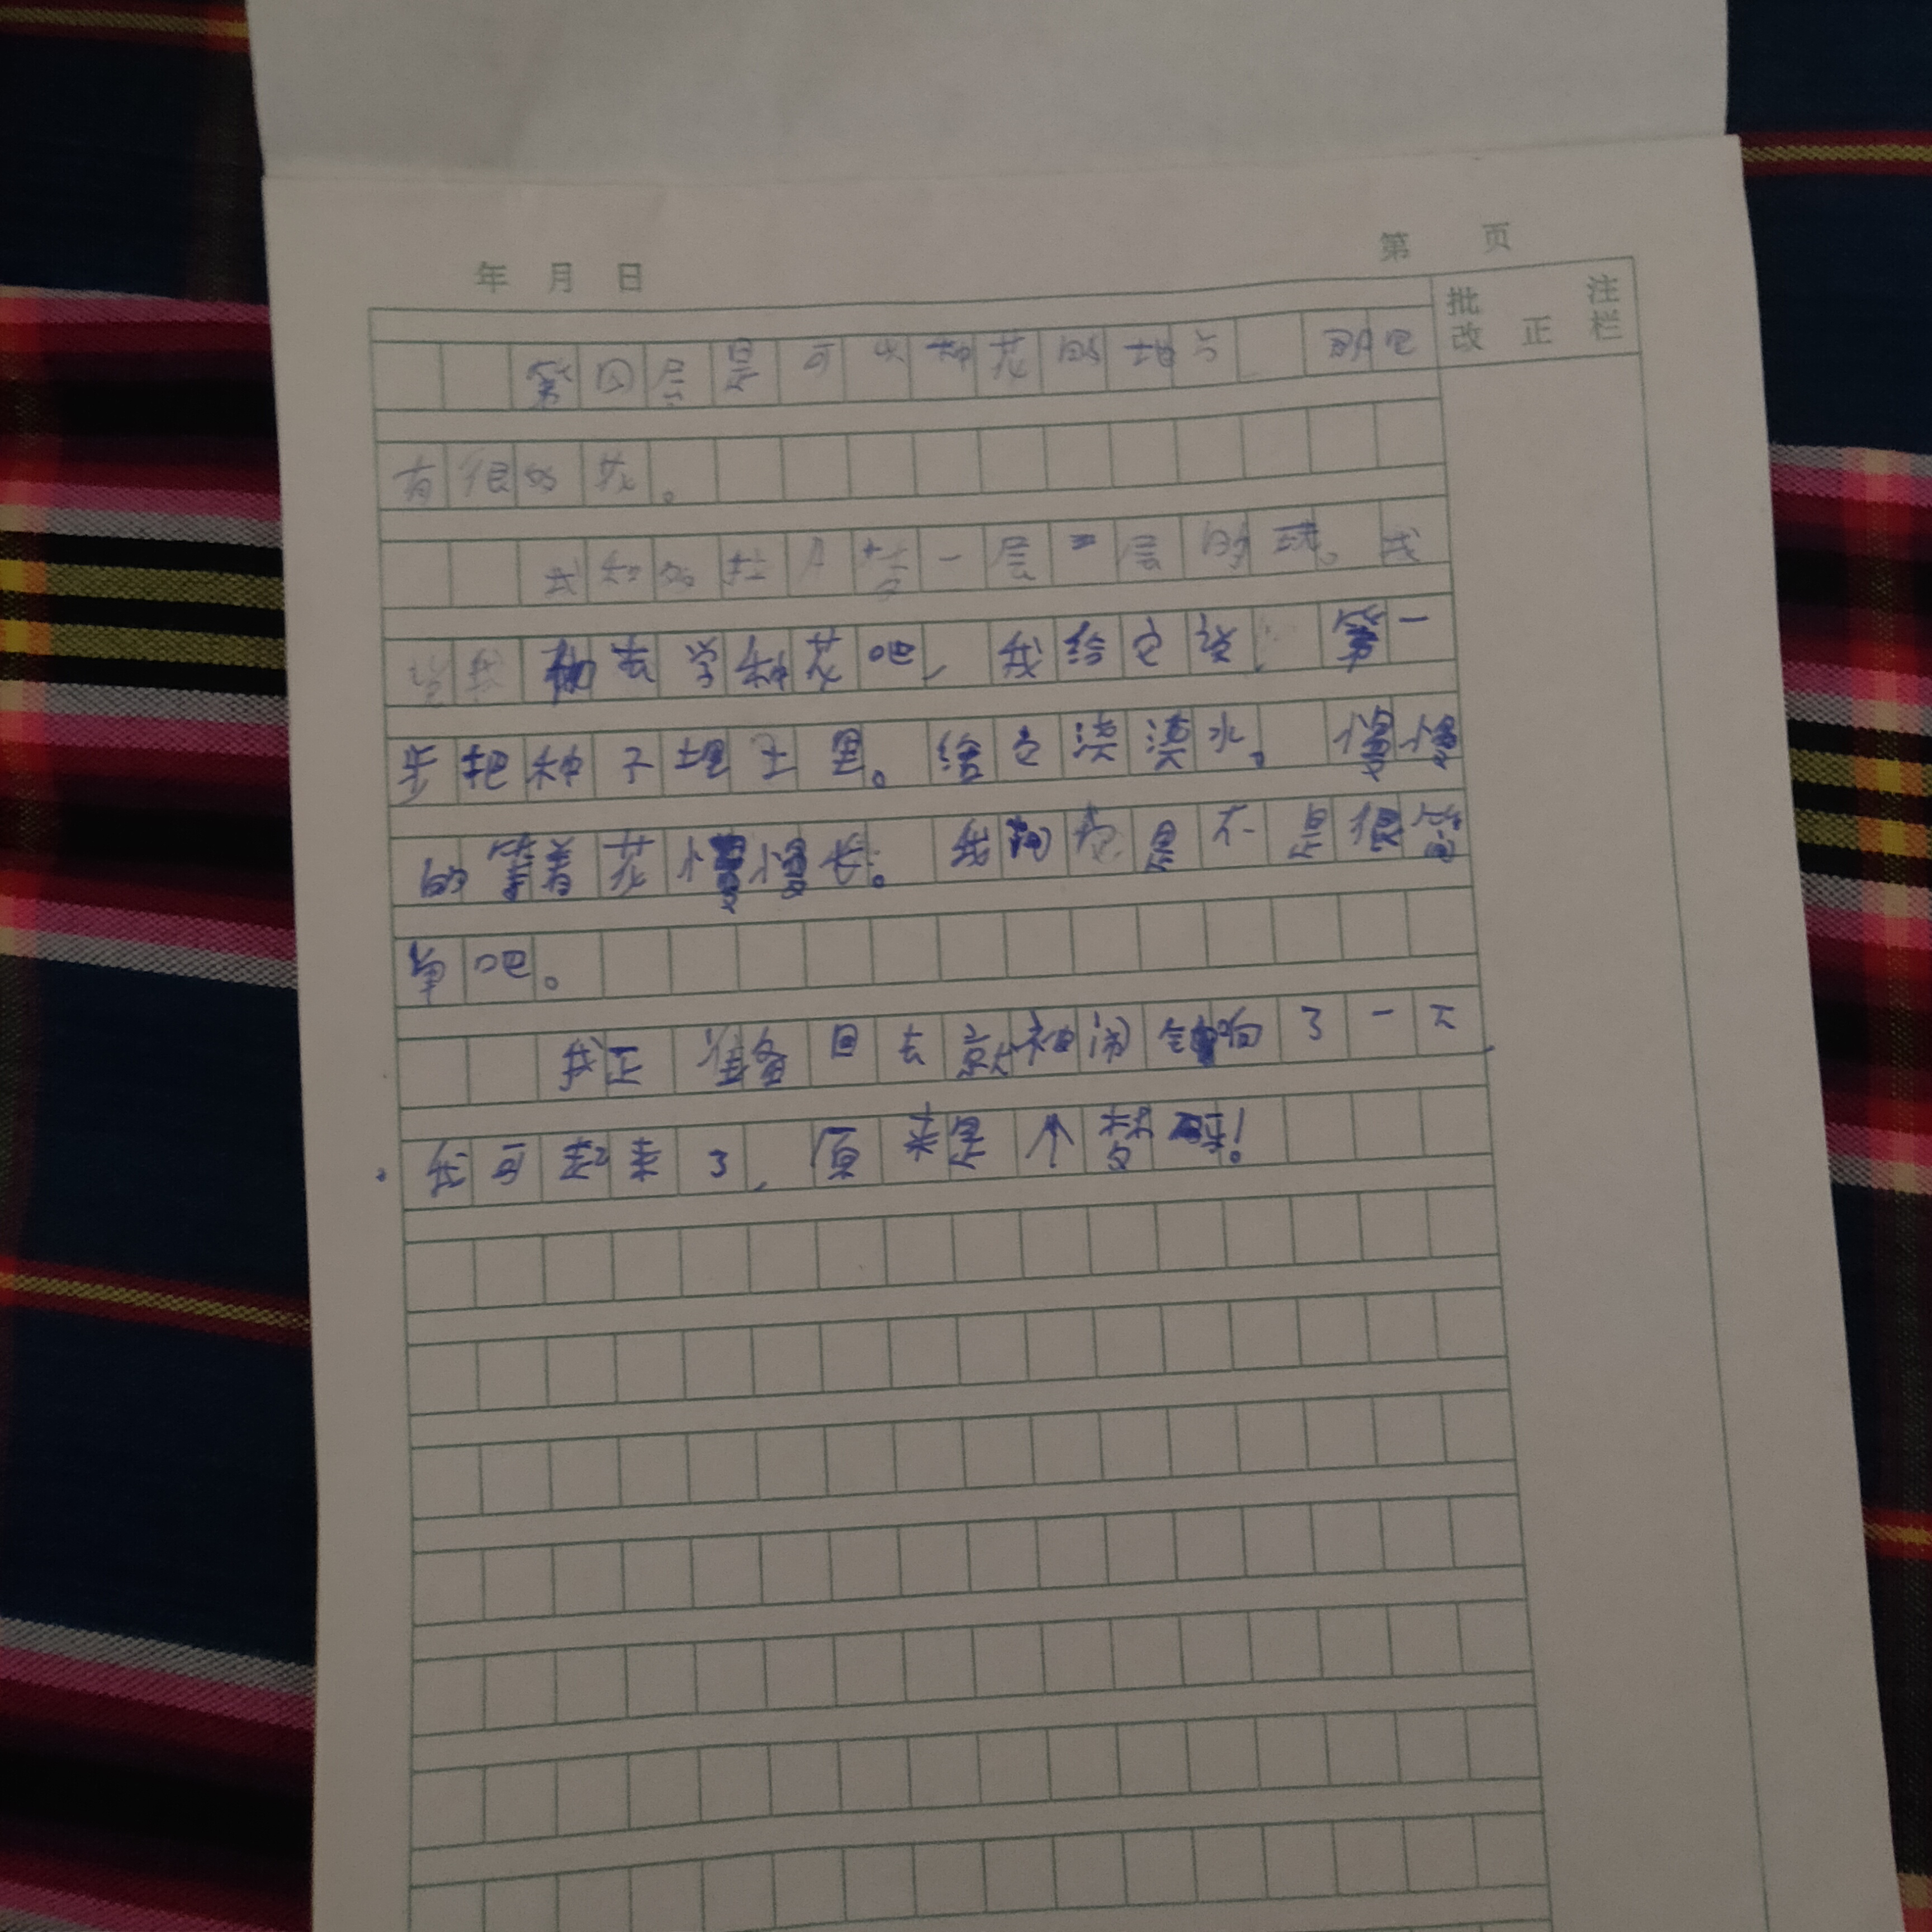 年 月 日 第 页
批改 正 注栏
第四层是可以种花的地方 那里
有很多花。
我 一层一层的玩。我
带你去学种花吧,我给它说 第一
步把种子埋土里。给它浇浇水。慢慢
的等着花慢慢长。我问你是不是很简
单吧。
我正准备回去就被闹钟响了一下
。我可起来了,原来是个梦呀!